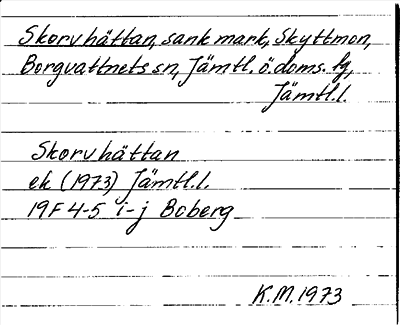 Skorvhättan, sank mark, Skyttmon,
Borgvattnets sn, Jämtl. ö. doms. tg,
Jämtl.l.
Skorvhättan
ek (1973) Jämtl.l.
19F 4-5 i-j Boberg
K.M. 1973